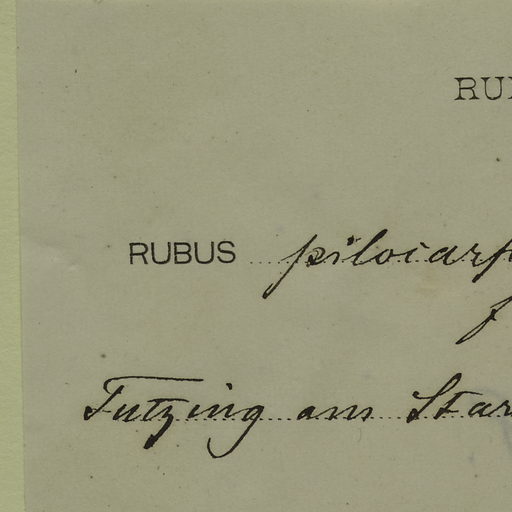 RU
RUBUS pilocarp
f
Tutzing am Star